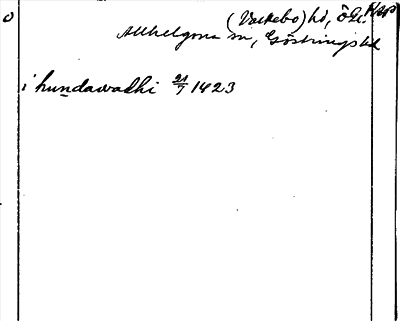 O (Valkebo) hd, Ög.
Allhelgona sn, Göstringshd
i hundawadhi 21/7 1423